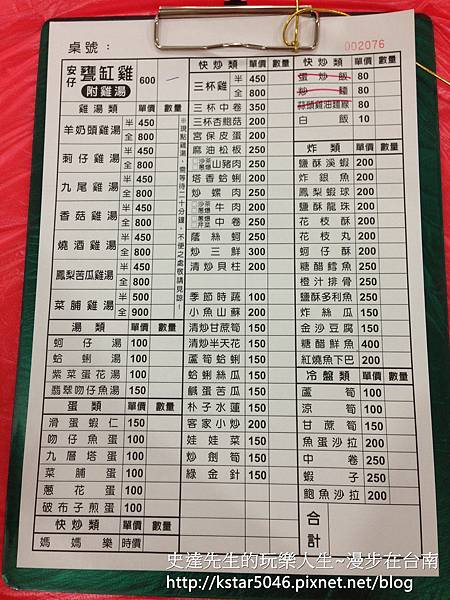 桌號:
002076
安仔 甕缸雞 附雞湯 600 一
雞湯類 單價 數量
羊奶頭雞湯 半 450 全 800
刺仔雞湯 半 450 全 800
九尾雞湯 半 450 全 800
香菇雞湯 半 450 全 800
燒酒雞湯 半 450 全 800
鳳梨苦瓜雞湯 半 450 全 800
菜脯雞湯 半 500 全 900
※現點雞湯,需等待二十分鐘,不便之處敬請見諒!
湯類 單價 數量
蚵仔湯 100
蛤蜊湯 100
紫菜蛋花湯 100
翡翠吻仔魚湯 150
蛋類 單價 數量
滑蛋蝦仁 150
吻仔魚蛋 100
九層塔蛋 100
菜脯蛋 100
蔥花蛋 100
破布子煎蛋 100
快炒類 單價 數量
媽媽樂 時價
快炒類 單價 數量
三杯雞 半 450 全 800
三杯中卷 350
三杯杏鮑菇 200
宮保皮蛋 200
麻油松板 250
山豬肉 200
塔香蛤蜊 200
炒螺肉 250
牛肉 200
中卷 250
蔭絲蚵 250
炒三鮮 300
清炒貝柱 200
季節時蔬 100
小魚山蘇 200
清炒甘蔗筍 150
清炒半天花 150
蘆筍蛤蜊 150
蛤蜊絲瓜 150
鹹蛋苦瓜 150
朴子水蓮 150
客家小炒 200
娃娃菜 150
炒劍筍 150
綠金針 150
快炒類 單價 數量
蛋炒飯 80
炒麵 80
蒜頭雞油麵線 80
白飯 10
炸類 單價 數量
鹽酥溪蝦 200
炸銀魚 200
鳳梨蝦球 200
鹽酥龍珠 200
花枝酥 200
花枝丸 200
蚵仔酥 200
糖醋鱈魚 250
橙汁排骨 250
鹽酥多利魚 250
炸絲瓜 150
金沙豆腐 150
糖醋鮮魚 400
紅燒魚下巴 200
冷盤類 單價 數量
蘆筍 100
涼筍 100
甘蔗筍 150
魚蛋沙拉 200
中卷 250
蝦子 250
鮑魚沙拉 200
合計
史達先生的玩樂人生~漫步在台南
http://kstar5046.pixnet.net/blog